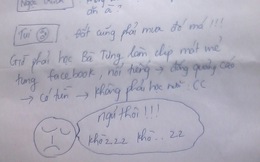 ăn à?
Tui 3 : tốt cũng phải mua đề mà !!!
Giờ phải học Bà Tưng làm clip mát mẻ
tung facebook, nổi tiếng → đóng quảng cáo
→ Có tiền → không phải học nữa. CC
ngớ thôi !!!
Khò 2.22 Khò.. 22